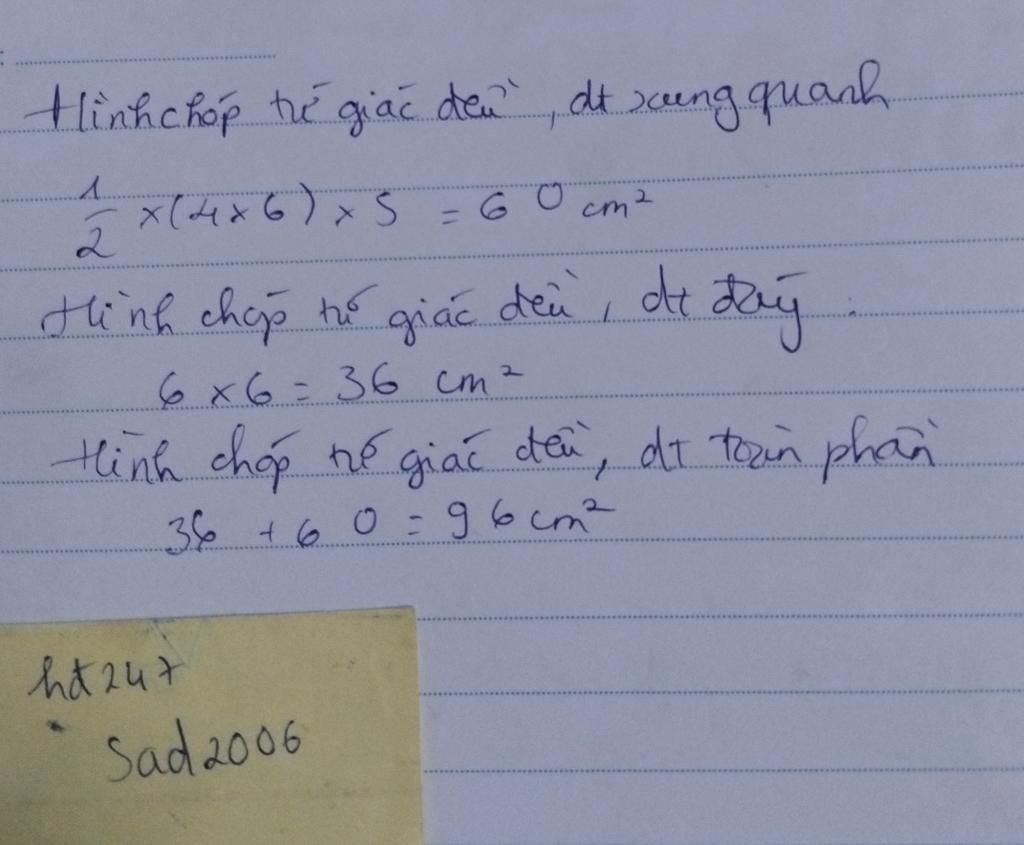 Hình chóp tứ giác đều, dt xung quanh
1/2 × (4 × 6) × 5 = 60 cm²
Hình chóp tứ giác đều, dt đáy.
6 × 6 = 36 cm²
Hình chóp tứ giác đều, dt toàn phần
36 + 60 = 96 cm²
hđ247
Sad2006